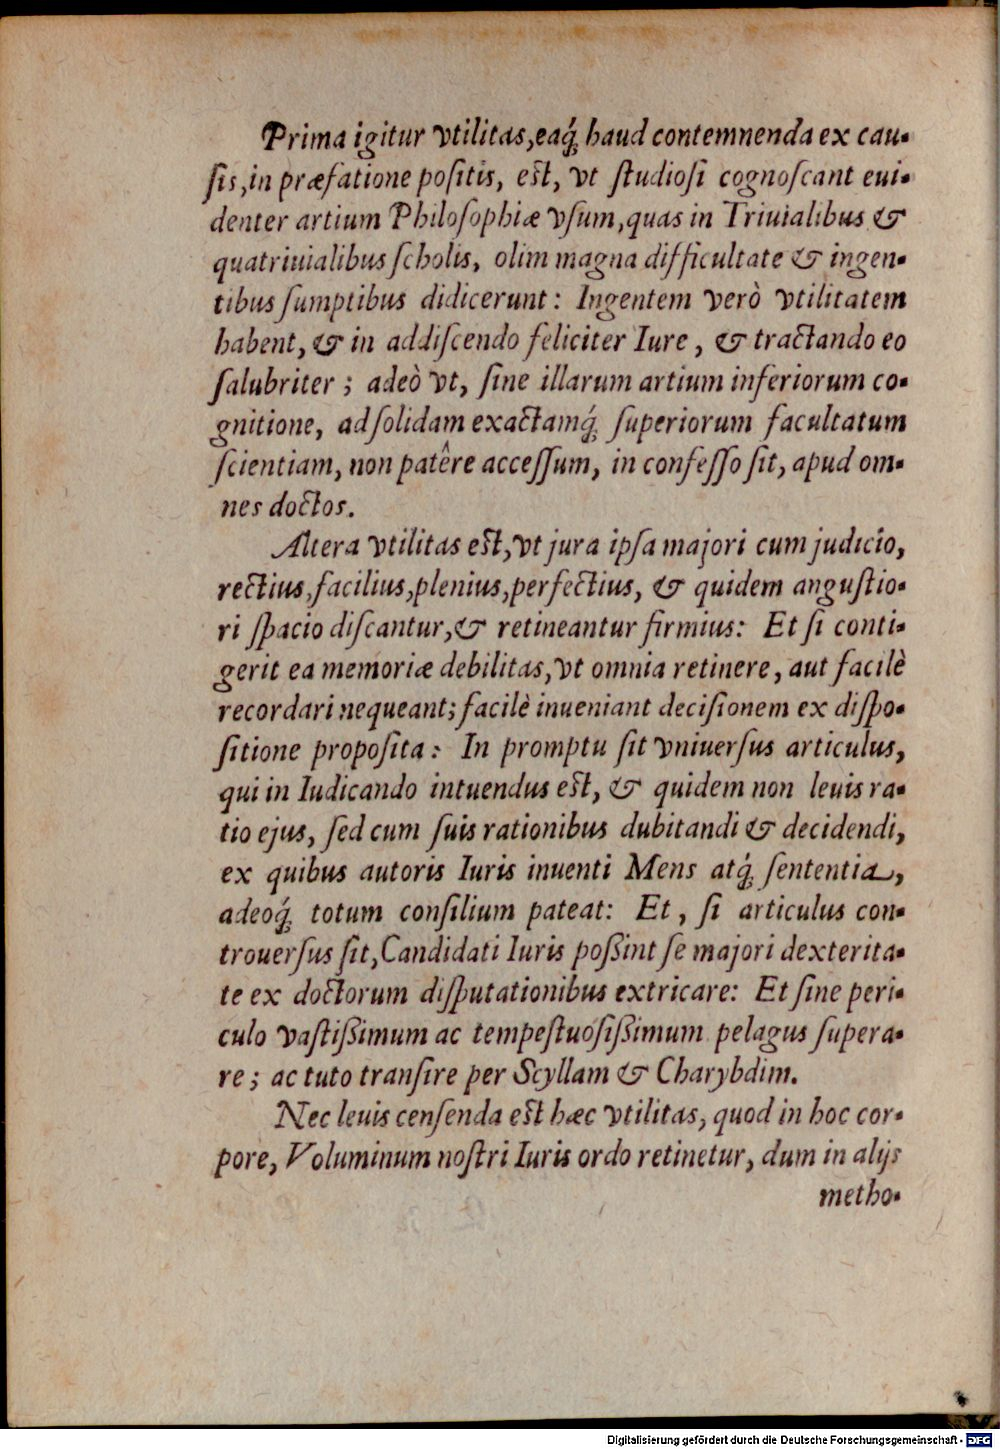 Prima igitur vtilitas, eaq́; haud contemnenda ex cau-
ſis, in præfatione poſitis, eſt, vt ſtudioſi cognoſcant eui-
denter artium Philoſophiæ vſum, quas in Triuialibus &
quatriuialibus ſcholis, olim magna difficultate & ingen-
tibus ſumptibus didicerunt: Ingentem verò vtilitatem
habent, & in addiſcendo feliciter Iure, & tractando eo
ſalubriter; adeò vt, ſine illarum artium inferiorum co-
gnitione, ad ſolidam exactamq́; ſuperiorum facultatum
ſcientiam, non patêre acceſſum, in confeſſo ſit, apud om-
nes doctos.
Altera vtilitas eſt, vt jura ipſa majori cum judicio,
rectius, facilius, plenius, perfectius, & quidem anguſtio-
ri ſpacio diſcantur, & retineantur firmius: Et ſi conti-
gerit ea memoriæ debilitas, vt omnia retinere, aut facilè
recordari nequeant; facilè inueniant deciſionem ex diſpo-
ſitione propoſita: In promptu ſit vniuerſus articulus,
qui in Iudicando intuendus eſt, & quidem non leuis ra-
tio ejus, ſed cum ſuis rationibus dubitandi & decidendi,
ex quibus autoris Iuris inuenti Mens atq́; ſententia,
adeoq́; totum conſilium pateat: Et, ſi articulus con-
trouerſus ſit, Candidati Iuris poßint ſe majori dexterita-
te ex doctorum diſputationibus extricare: Et ſine peri-
culo vaſtißimum ac tempeſtuoſißimum pelagus ſupera-
re; ac tuto tranſire per Scyllam & Charybdim.
Nec leuis cenſenda eſt hæc vtilitas, quod in hoc cor-
pore, Voluminum noſtri Iuris ordo retinetur, dum in alijs
metho-
Digitalisierung gefördert durch die Deutsche Forschungsgemeinschaft - DFG